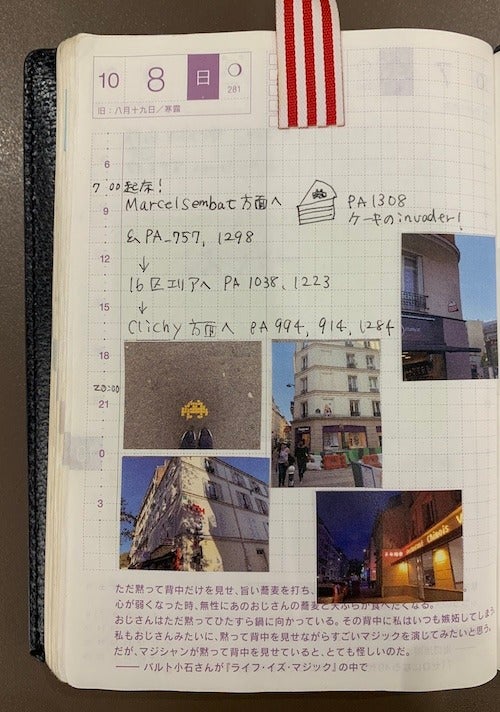 10 8 日
281
旧：八月十九日／寒露
6
7:00 起床！
Marcel sembat 方面へ
PA 1308
ケーキのinvader！
9
& PA_757, 1298
12
↓
16区エリアへ PA 1038, 1223
15
↓
Clichy 方面へ PA 994, 914, 1284
18
23:00
21
0
3
ただ黙って背中だけを見せ、旨い蕎麦を打ち、
心が弱くなった時、無性にあのおじさんの蕎麦と天ぷらが食べたくなる。
おじさんはただ黙ってひたすら鍋に向かっている。その背中に私はいつも嫉妬してしまう
私もおじさんみたいに、黙って背中を見せながらすごいマジックを演じてみたいと思う。
だが、マジシャンが黙って背中を見せていると、とても怪しいのだ。
── バルト小石さんが『ライフ・イズ・マジック』の中で